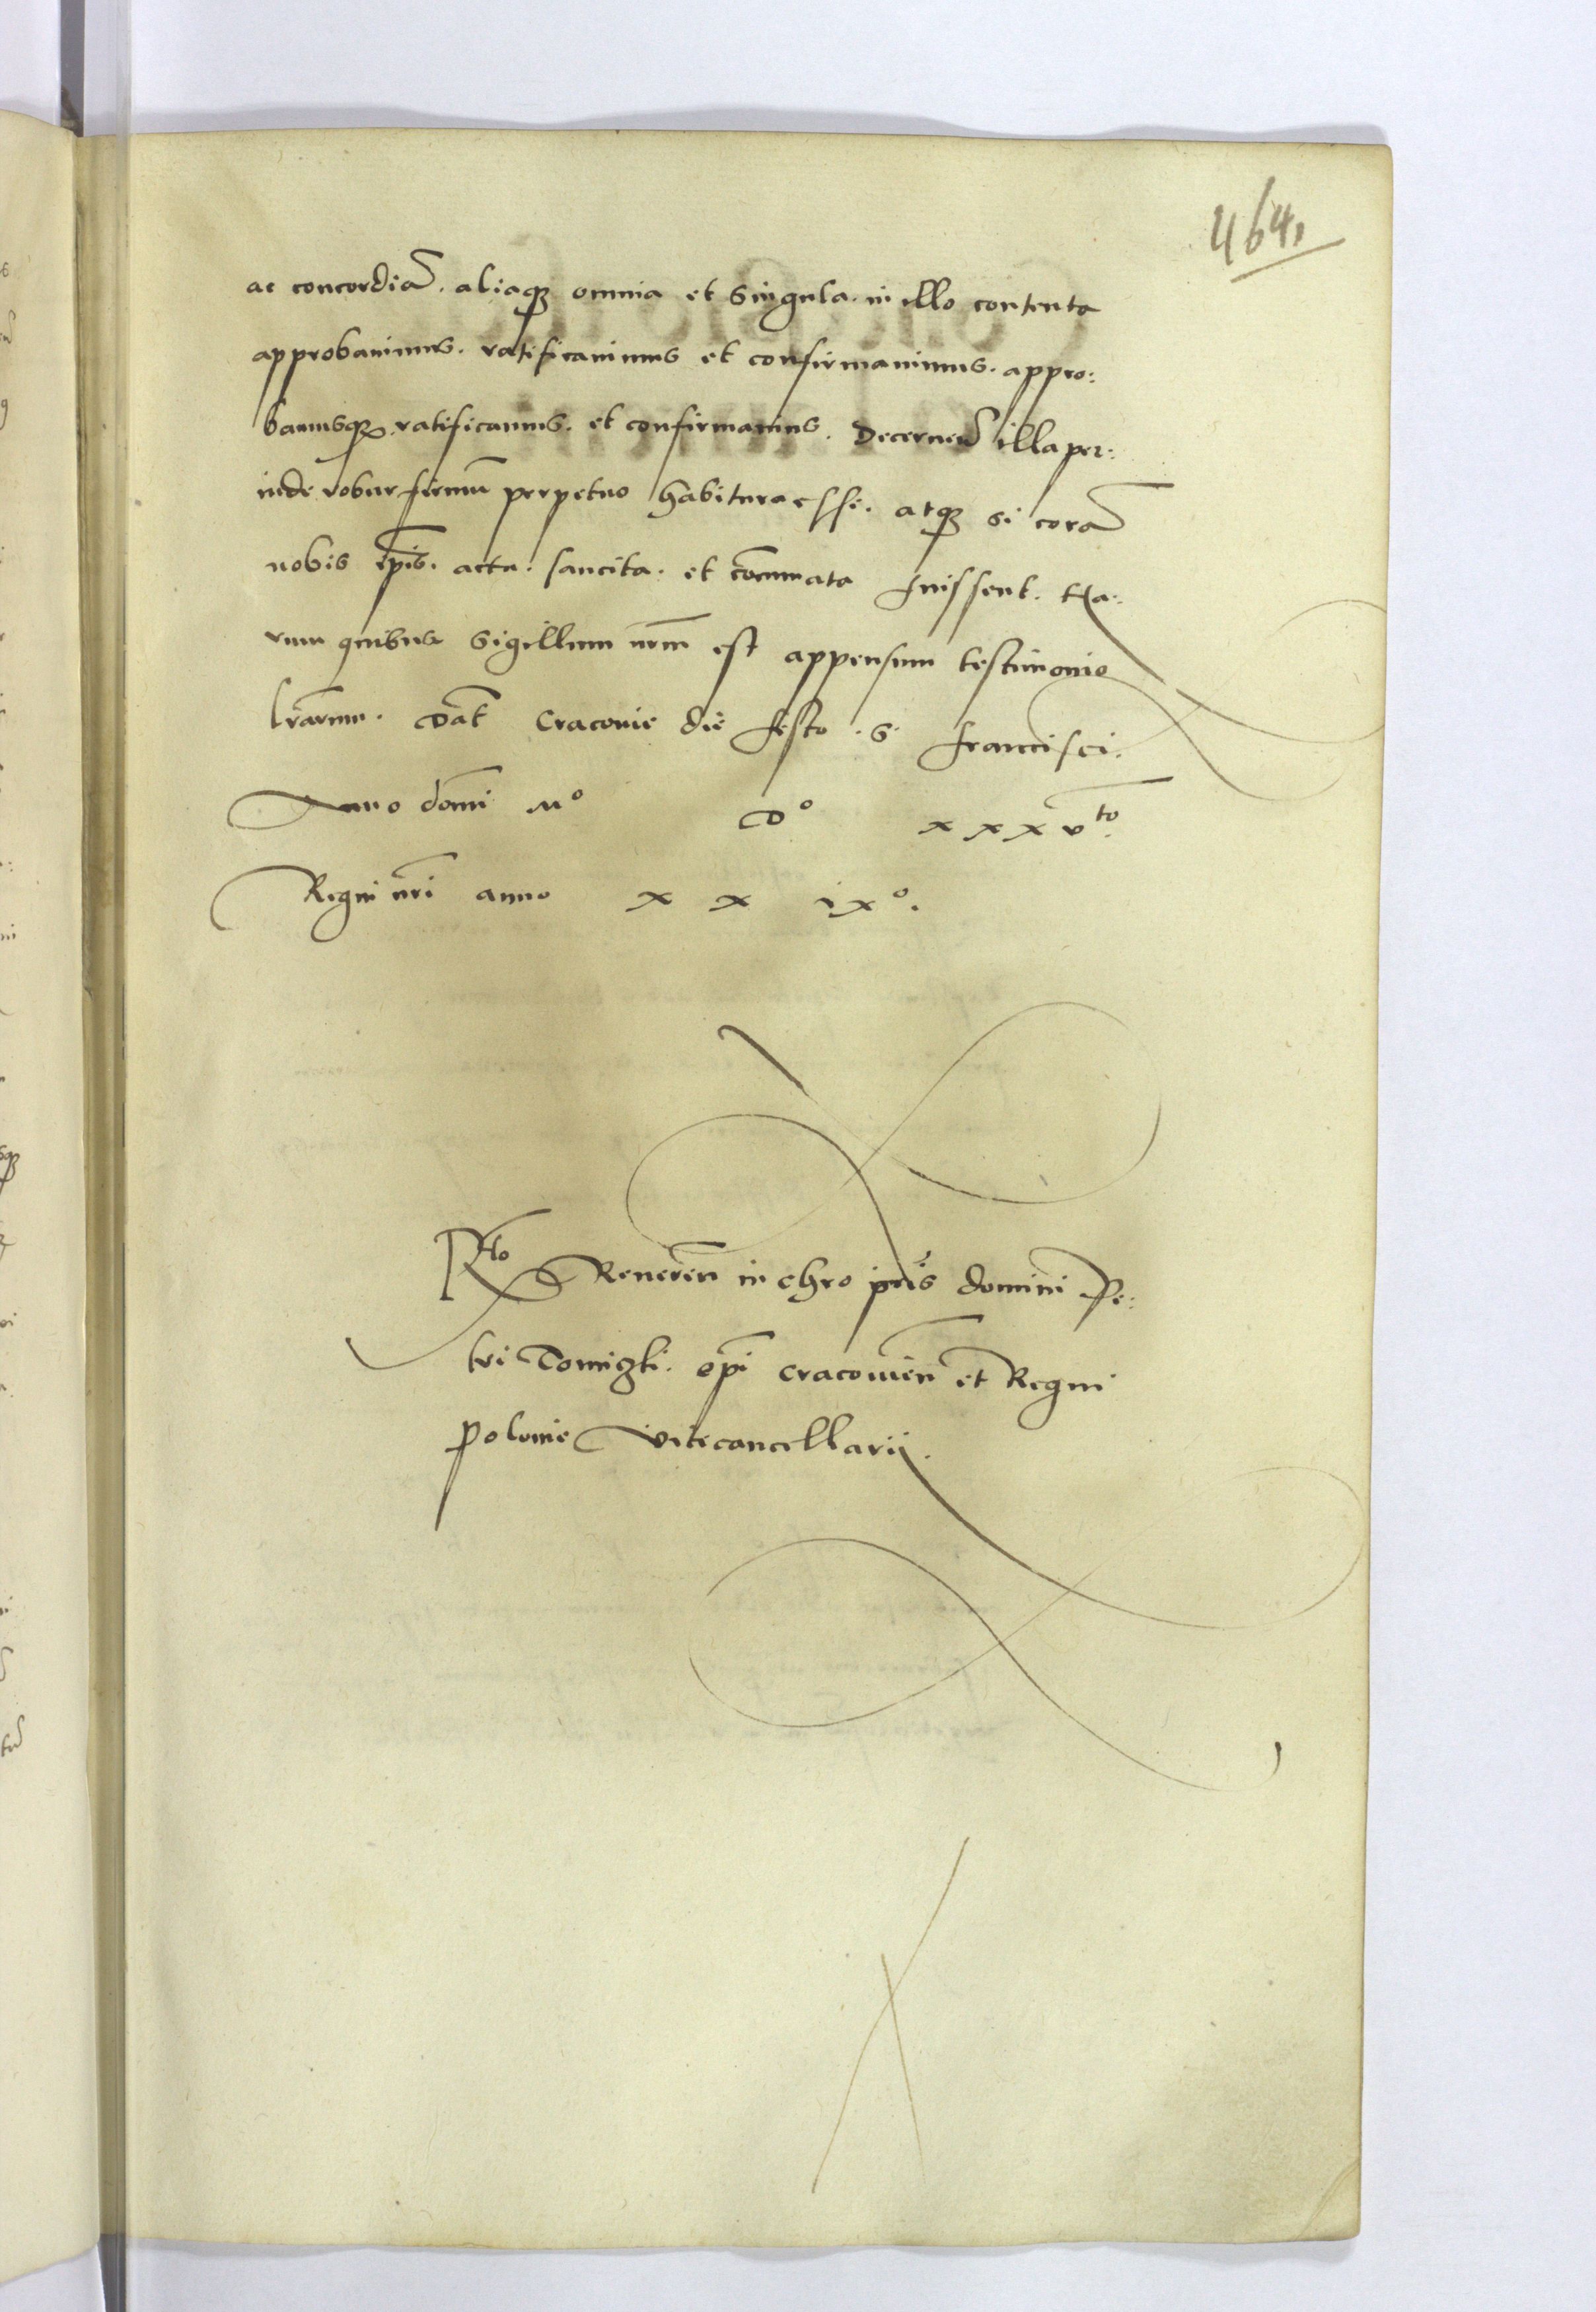 464,
ac concordiā. aliaqȝ omnia et singula. in illo contenta
approbauimus. ratificauimus et confirmauimus. appro:
bamusqȝ. ratificamus. et confirmamus. Decernen̄ illa per:
inde robur firmū perpetuo habitura esse. atqȝ si corā
nobis ip̄is. acta. sancita. et
fuissent. Ha:
rum quibus Sigillum nr̄m est appensum testimonio
lr̄arum. Dat̄ Cracouie die festo .S. Francisci.
Anno domī Mº Dº xxxvto.
Regni nr̄i anno xx ixº.
Rto Reueren̄ in chro pr̄is domini Pe:
tri Tomiczki. ep̄i Cracouien̄ et Regni
Polonie Vicecancellarij.